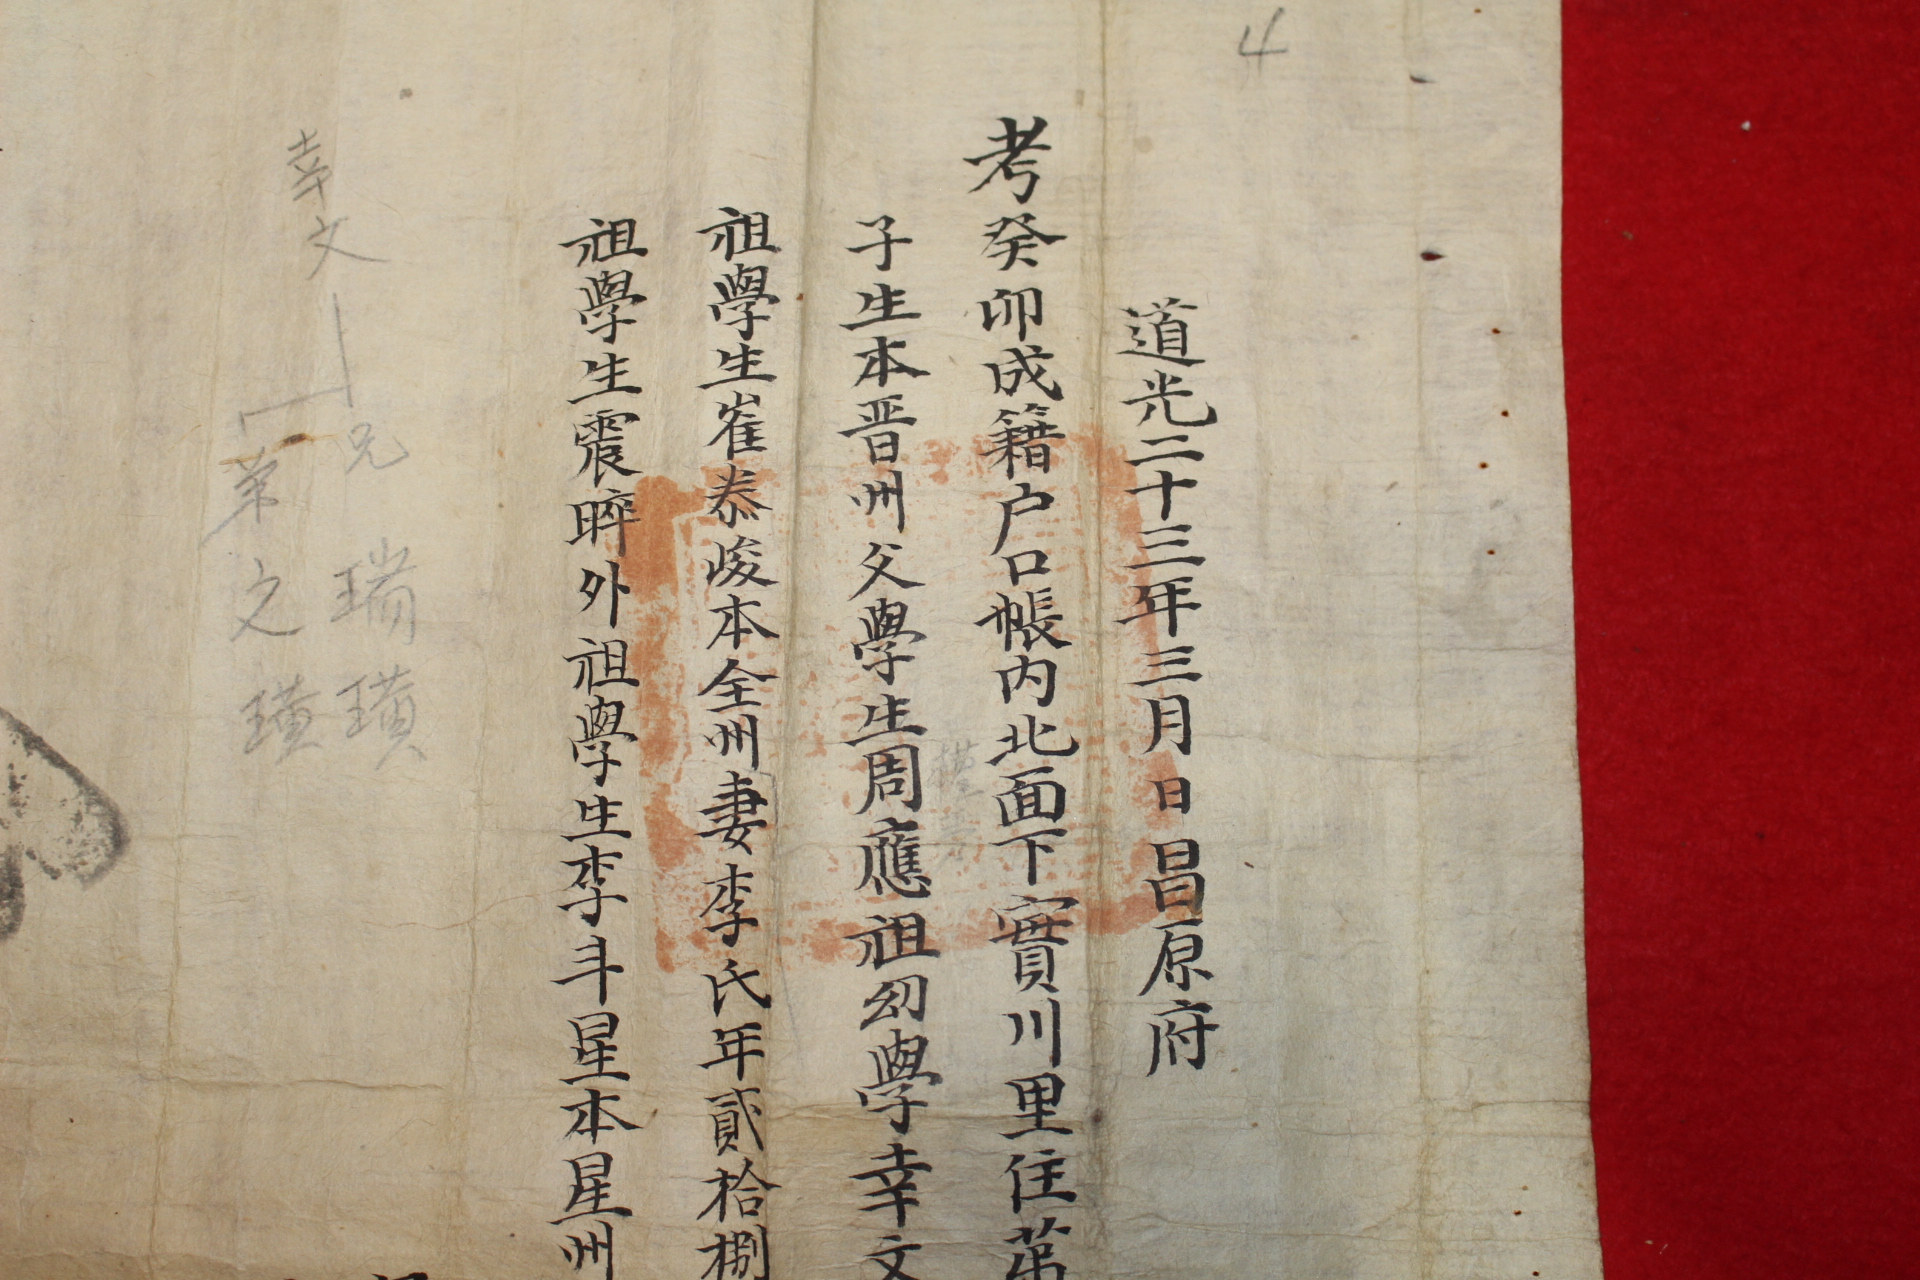 4
道光二十三年三月日昌原府
考癸卯成籍户口帳内北面下實川里住苐
子生本晋州父學生周應祖幼學幸文
祖學生崔泰峻本全州妻李氏年貳拾捌
祖學生震晬外祖學生李斗星本星州
幸文
兄 瑞璜
弟 之璜